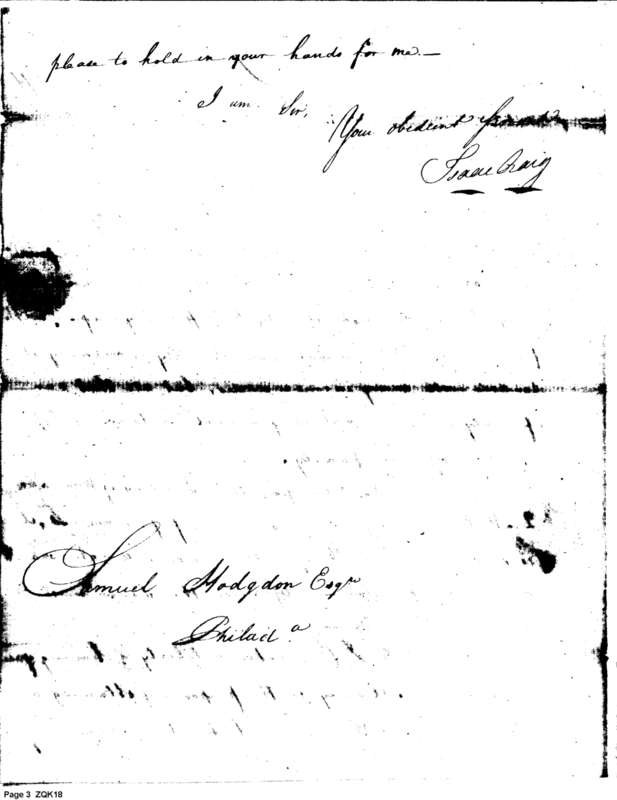 please to hold in your hands for me.—
I am Sir,
Your obedient Servant
Isaac Craig
Samuel Hodgdon Esqr
Philada.
Page 3 ZQK18